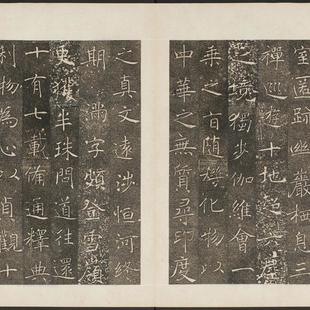 室匿跡幽巖栖身三
禪巡遊十地超六塵
之境獨步伽維會一
乘之旨隨機化物以
中華之無質尋印度
之真文遠涉恒河終
期滿字頻登雪嶺
更獲半珠問道往還
十有七載備通釋典
利物為心以貞觀十